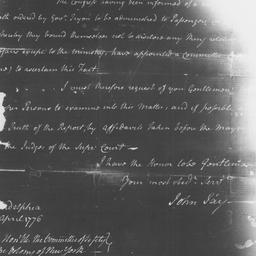 The Congress having been informed of a
oath ordered by Govr. Tryon to be administred to Passengers
whereby they bound themselves not to disclose any thing relative
affairs except to the ministry, have appointed a Committee
to ascertain this Fact.
I must therefore request of you Gentlemen
Persons to examine into this Matter, and if possible
Truth of the Report, by affidavits taken before the Mayor
the Judges of the Supr. Court—
I have the Honor to be Gentlemen
Your most obedt. Servt.
John Jay
delphia
April 1776
Honble. the Committee of Safety
the Colony of New York